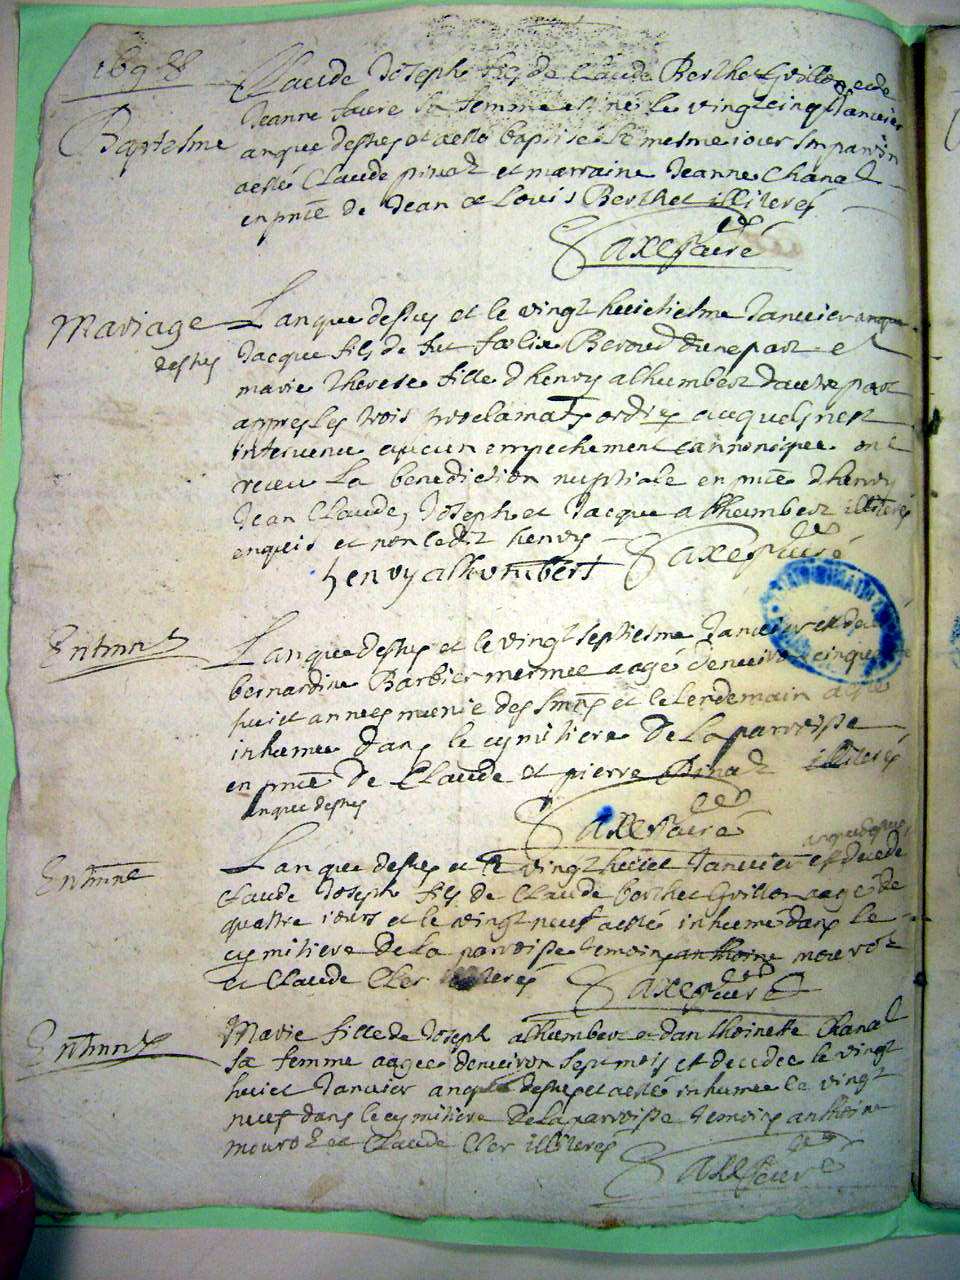 Claude Joseph fils de Claude Berthet Guillon et de
Jeanne faure sa femme est né le vingtcinq Janvier
Baptesme
anque desus et a esté baptisé le mesme jour son parrin
a esté Claude pinat et marraine Jeanne Chanal
en pnce de Jean et Louis Berthet illiterés
Mariage
desus
L'an que desus et le vingt huictiesme Janvier
Jacque fils de fut foelix Beroud d'une part et
marie Therese fille d'henry alhumbert d'autre part
appres les trois proclamats ordres auquels n'est
intervenu aucun empechement cannonique ont
receu La benediction nuptiale en pnce d'henry
Jean Claude, Joseph et Jacque alhumbert illiterés
enquis et non ledit henry
henry alhumbert
L'an que desus et le vingt septiesme Janvier est
bernardine Barbier mermee aagé d'enviro cinqua
huict annees munie des Smens et le lendemain a esté
inhumee dans le cymitiere De La parroisse
en pnce de Claude et pierre Pinat illiterés
anque desus
L'an que desus et le vingt huict Janvier est decede
Claude Joseph fils de Claude berthet Guillon aagé de
quattre iours et le vingt neuf a esté inhumé dans le
cymitiere De La parroisse temoin anthoine mourot
et Claude Cler illiterés
Marie fille de Joseph alhumbert et d'anthoinette Chanal
sa femme aagee d'environ sept mois est decedee le vingt
huict Janvier anque desus et a esté inhumee le vingt
neuf dans le cymitiere De La parroisse temoins anthoine
mourot et Claude Cler illiterés